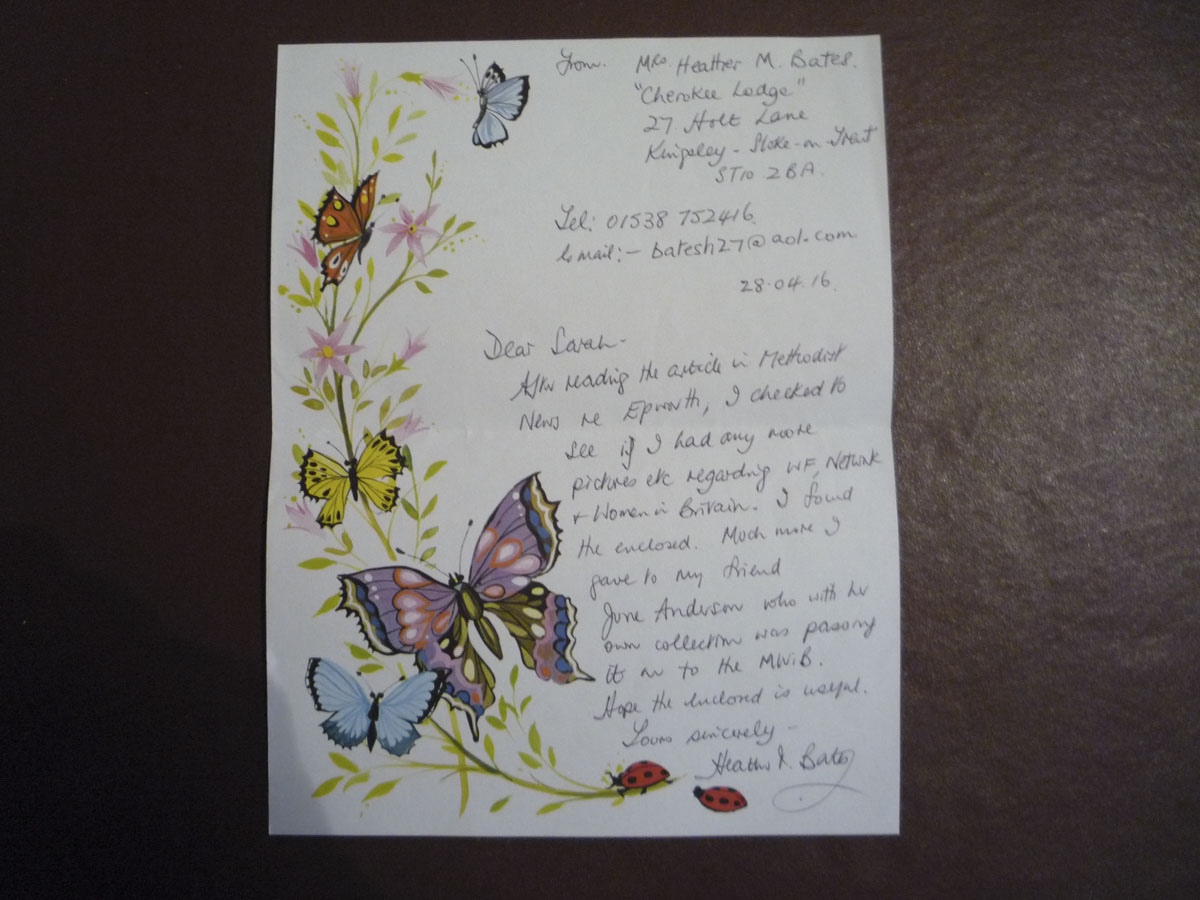 From. Mrs. Heather M. Bates.
"Cherokee Lodge"
27 Holt Lane
Kingsley - Stoke-on-Trent
ST10 2BA.
Tel: 01538 752416.
E mail:- batesh27@aol.com
28.04.16.
Dear Sarah-
After reading the article in Methodist
News re Epworth, I checked to
see if I had any more
pictures etc regarding WF, Network
+ Women in Britain. I found
the enclosed. Much more I
gave to my friend
June Anderson who with her
own collection was passing
it on to the MWiB.
Hope the enclosed is useful.
Yours sincerely -
Heather M. Bates